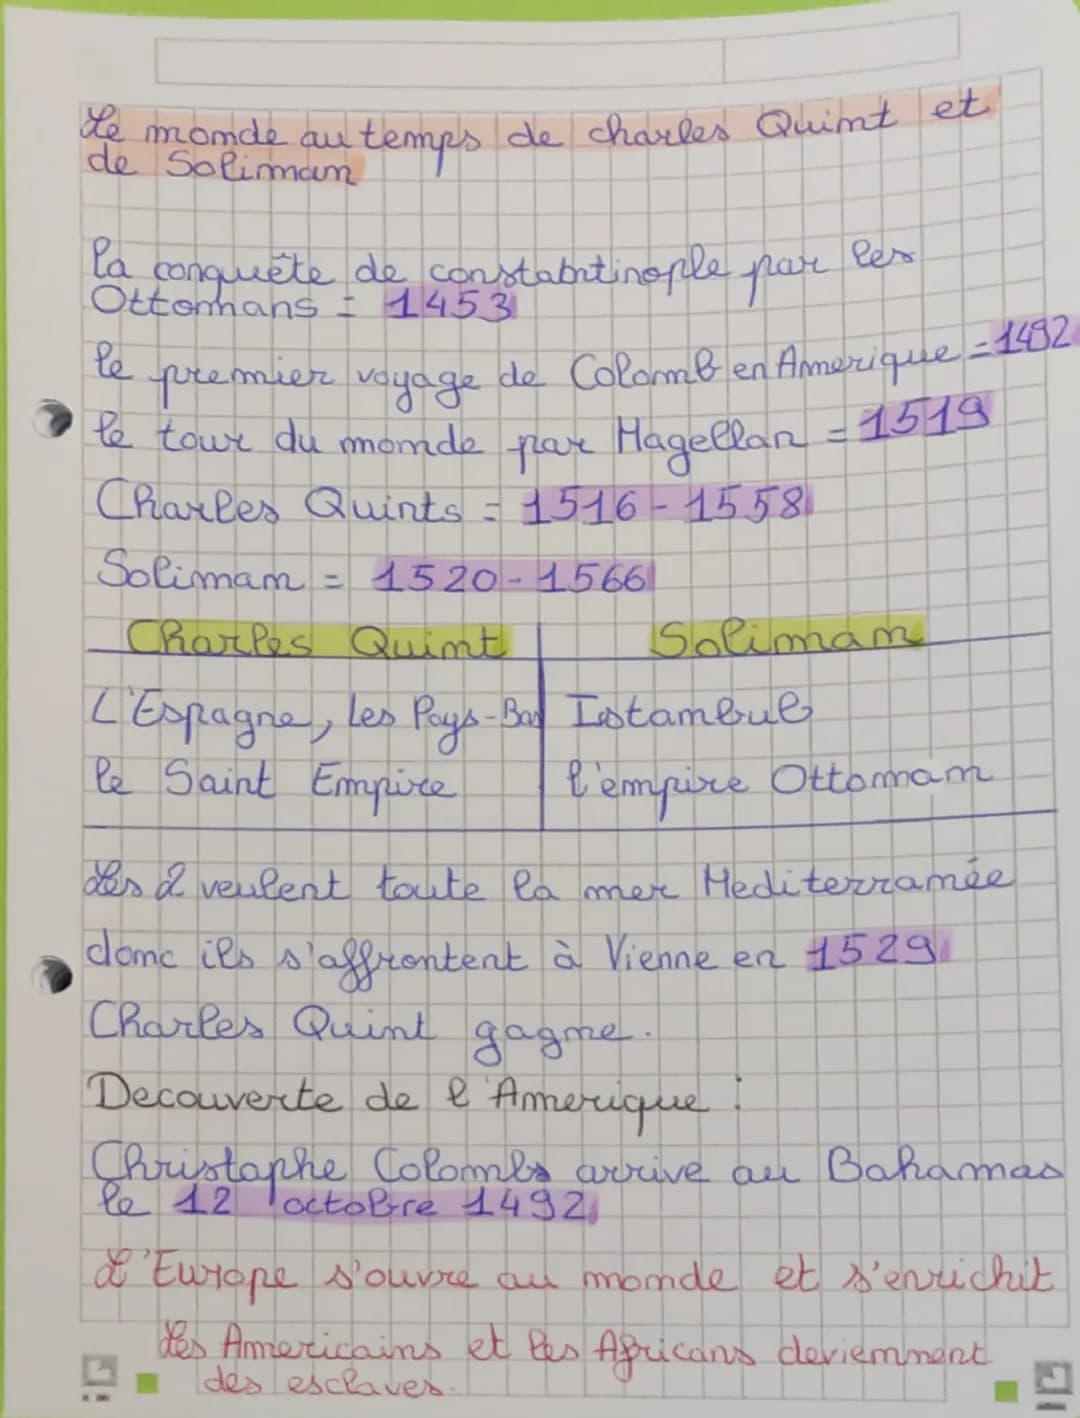 Le monde au temps de charles Quint et
de Soliman
la conquête de constabntinople par les
Ottomans = 1453
le premier voyage de Colomb en Amerique = 1492
le tour du monde par Magellan = 1519
Charles Quints = 1516 - 1558
Soliman = 1520 - 1566
Charles Quint Soliman
L'Espagne, les Pays-Bas Istambul
le Saint Empire l'empire Ottoman
Les 2 veulent toute la mer Mediterranée
donc ils s'affrontent à Vienne en 1529
Charles Quint gagne.
Decouverte de l'Amerique :
Christophe Colombs arrive au Bahamas
le 12 octobre 1492
L'Europe s'ouvre au monde et s'enrichit
Les Americains et les Africans deviennent
des esclaves.